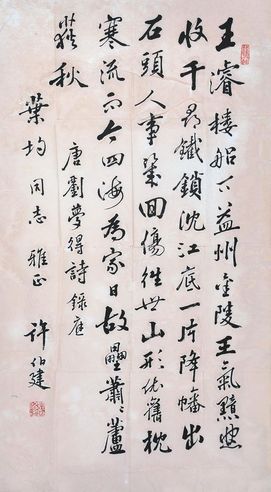 王濬樓船下益州金陵王氣黯然
收千尋鐵鎖沈江底一片降幡出
石頭人事幾回傷往世山形依舊枕
寒流而今四海為家日故壘蕭〻蘆
荻秋
唐劉夢得詩錄應
葉均同志雅正
許伯建